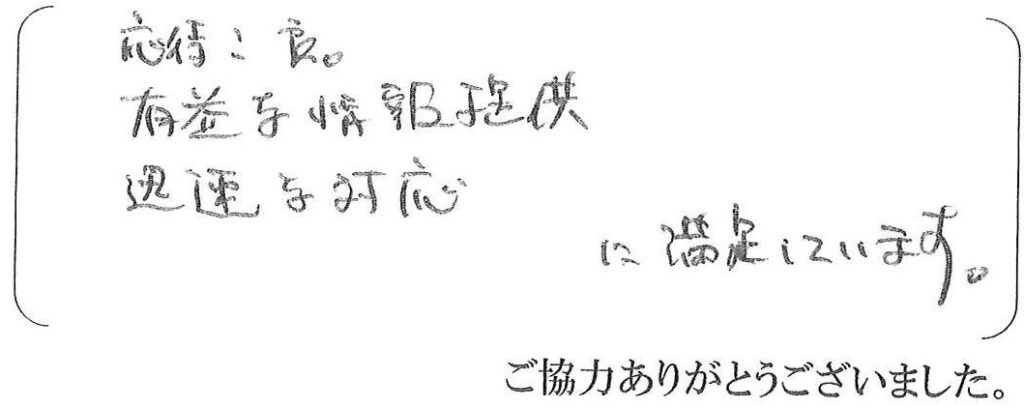 応待こ良。
有益な情報提供
迅速な対応
に満足しています。
ご協力ありがとうございました。